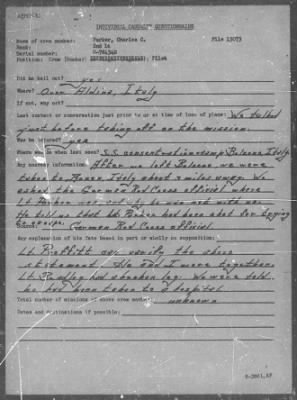 INDIVIDUAL CASUALTY QUESTIONNAIRE
Name of crew member: Parker, Charles C. File 13073
Rank: 2nd Lt
Serial number:
Position: Crew Pilot
Did he bail out? yes
Where? Over Aldino, Italy
If not, why not?
Last contact or conversation just prior to or at time of loss of plane: We talked
just before taking off on the mission.
Was he injured? yes
Where was he when last seen? S.S. concentration camp Bolzano Italy
Any hearsay information: After we left Bolzano we were
taken to Italy about miles away. We
asked the German Red Cross official where
Lt Parker not with us.
He told us that Lt. Parker had been shot for trying
to escape.
Source: German Red Cross official
Any explanation of his fate based in part or wholly on supposition:
Lt. Proffitt can verify the above
statement. He and I were together.
Lt had a broken leg. We were told
he had been taken to a hospital.
Total number of missions of above crew member: unknown
Dates and destinations if possible: